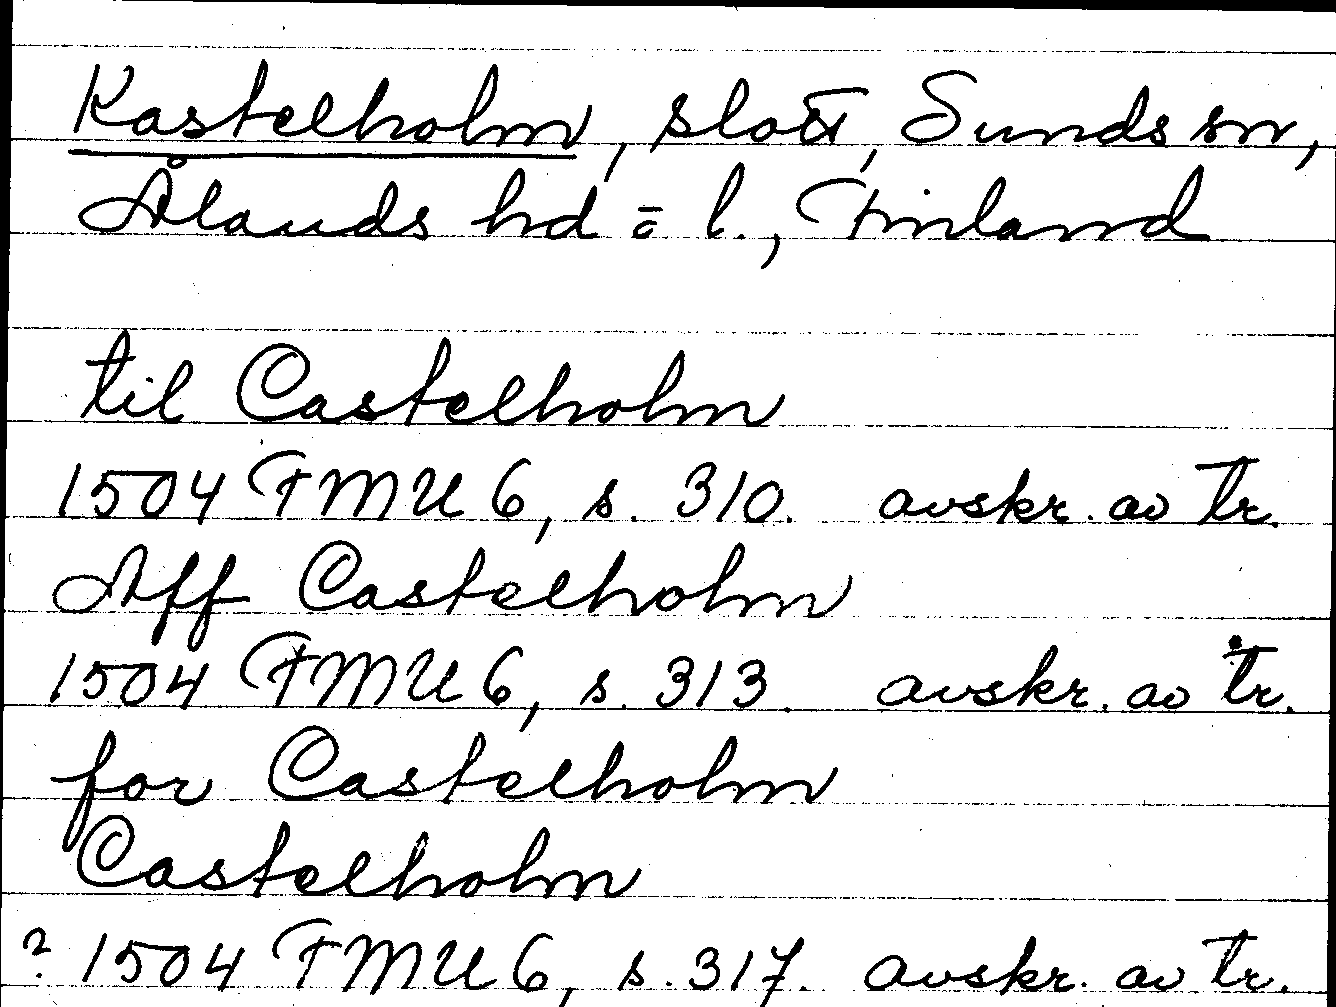 Kastelholm, slott, Sunds sn,
Ålands hd o l., Finland
til Castelholm
1504 FMU 6, s. 310. avskr. av tr.
Aff Castelholm
1504 FMU 6, s. 313. avskr. av tr.
for Castelholm
Castelholm
? 1504 FMU 6, s. 317. avskr. av tr.